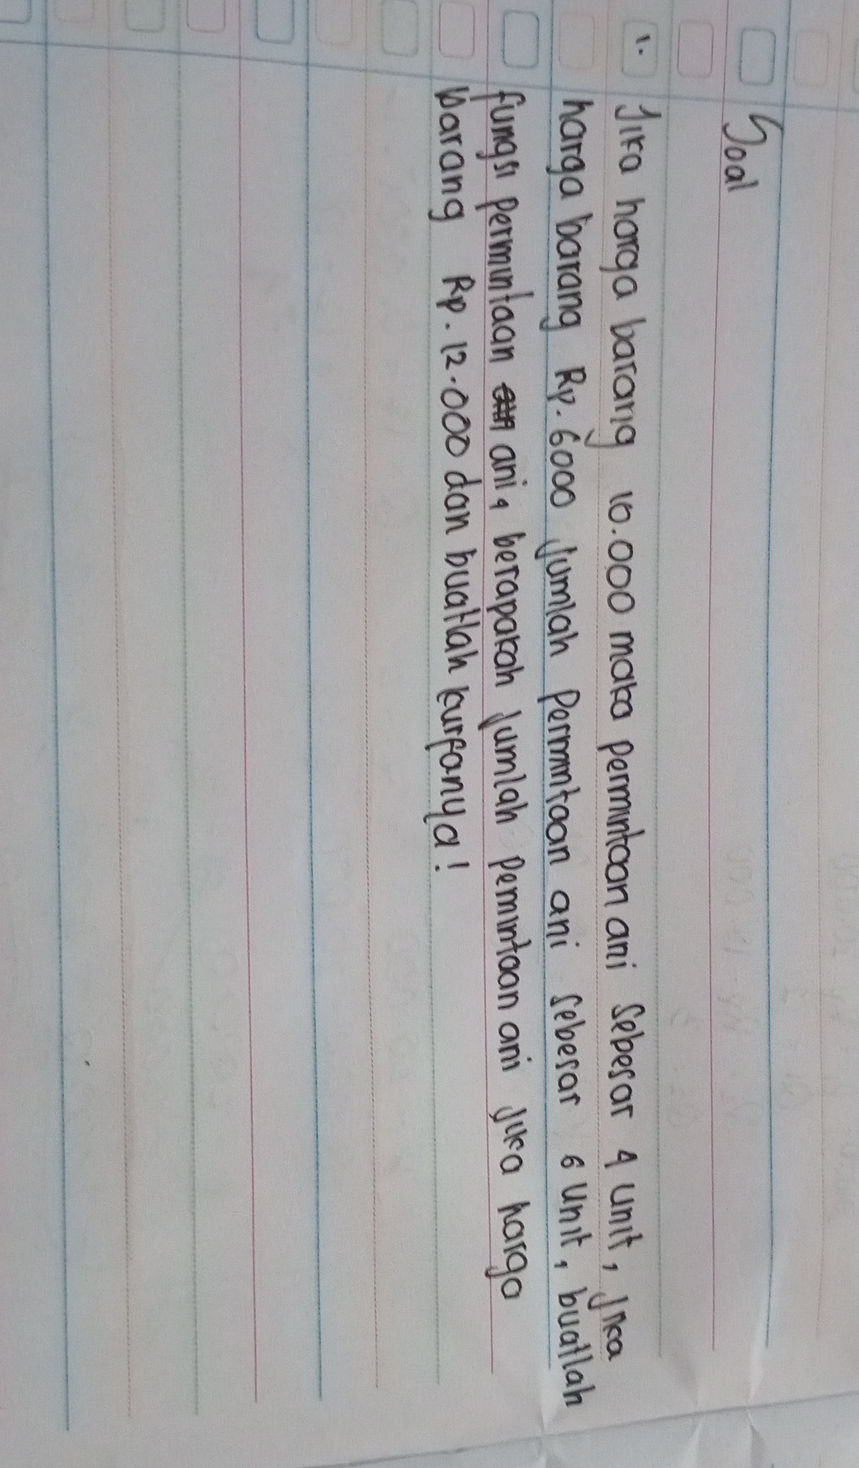 Soal
1. Jika harga barang 10.000 maka permintaan ani sebesar 4 unit, Jika
harga barang Rp. 6000 Jumlah Permintaan ani sebesar 6 unit, buatlah
fungsi permintaan ani, berapakah Jumlah Permintaan ani jika harga
barang Rp. 12.000 dan buatlah kurfanya!